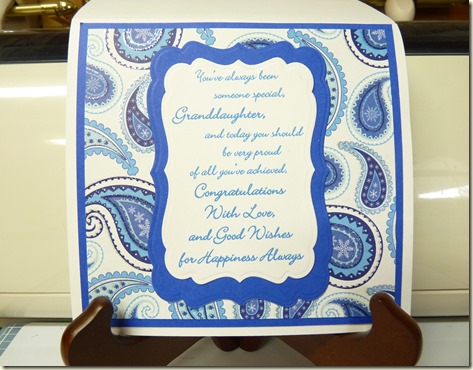 You've always been
someone special,
Granddaughter,
and today you should
be very proud
of all you've achieved.
Congratulations
With Love,
and Good Wishes
for Happiness Always